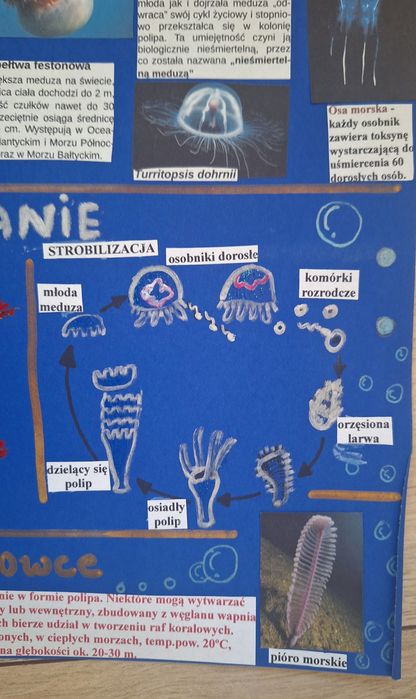 młoda jak i dojrzała meduza „od-
wraca” swój cykl życiowy i stopnio-
wo przekształca się w kolonię
polipa. Ta umiejętność czyni ją
biologicznie nieśmiertelną, przez
co została nazwana „nieśmiertel-
ną meduzą”
ełtwa festonowa
ększa meduza na świecie,
ica ciała dochodzi do 2 m,
ść czułków nawet do 30
zeciętnie osiąga średnicę
cm. Występują w Ocea-
lantyckim i Morzu Północ-
raz w Morzu Bałtyckim.
Turritopsis dohrnii
Osa morska -
każdy osobnik
zawiera toksynę
wystarczającą do
uśmiercenia 60
dorosłych osób.
ANIE
STROBILIZACJA
osobniki dorosłe
komórki
rozrodcze
młoda
meduza
orzęsiona
larwa
dzielący się
polip
osiadły
polip
owce
nie w formie polipa. Niektóre mogą wytwarzać
y lub wewnętrzny, zbudowany z węglanu wapnia
ch bierze udział w tworzeniu raf koralowych.
onych, w ciepłych morzach, temp.pow. 20°C,
na głębokości ok. 20-30 m.
pióro morskie